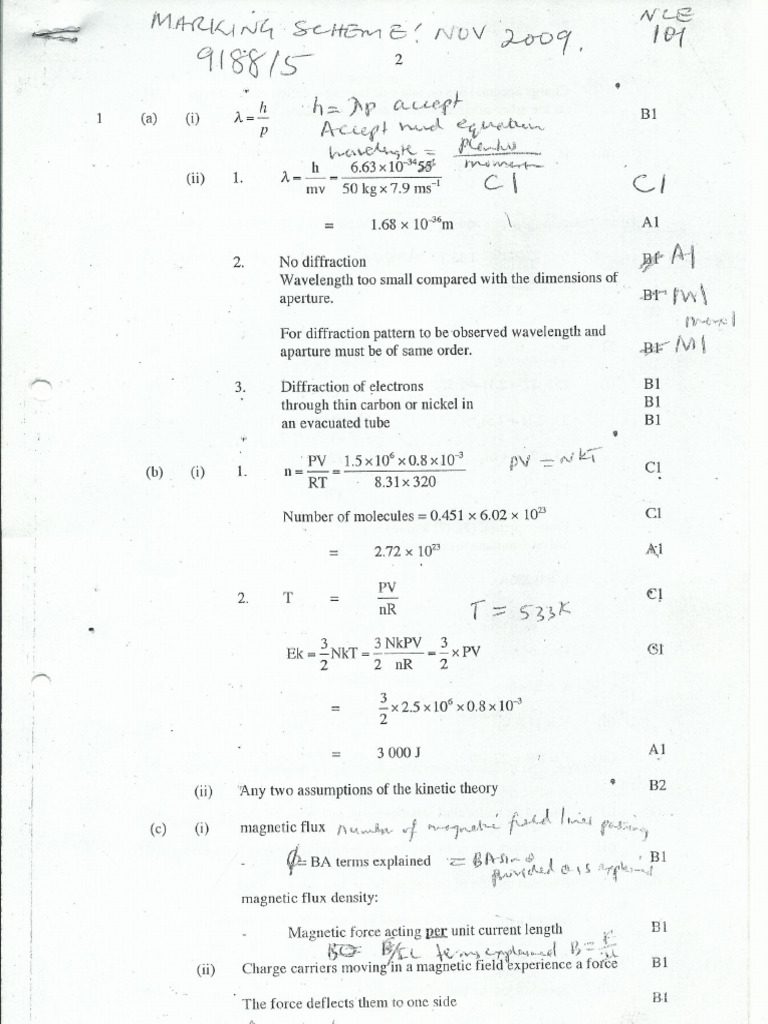 MARKING SCHEME! NOV 2009. NCE
9188/5 2 101
1 (a) (i) λ = h/p h = λp accept B1
Accept word equation
wavelength = Planks / momentum
(ii) 1. λ = h/mv = 6.63 × 10⁻³⁴ / 50 kg × 7.9 ms⁻¹ C1 C1
= 1.68 × 10⁻³⁶m A1
2. No diffraction B1 A1
Wavelength too small compared with the dimensions of
aperture. B1 M1
For diffraction pattern to be observed wavelength and
aparture must be of same order. B1 M1
3. Diffraction of electrons B1
through thin carbon or nickel in B1
an evacuated tube B1
(b) (i) 1. n = PV/RT = 1.5 × 10⁶ × 0.8 × 10⁻³ / 8.31 × 320 PV = NKT C1
Number of molecules = 0.451 × 6.02 × 10²³ C1
= 2.72 × 10²³ A1
2. T = PV/nR T = 533K C1
Ek = 3/2 NkT = 3/2 NkPV/nR = 3/2 × PV C1
= 3/2 × 2.5 × 10⁶ × 0.8 × 10⁻³
= 3 000 J A1
(ii) Any two assumptions of the kinetic theory B2
(c) (i) magnetic flux Number of magnetic field lines passing
- ϕ = BA terms explained = BA sin θ B1
provided θ is explained
magnetic flux density:
- Magnetic force acting per unit current length B1
terms explained
(ii) Charge carriers moving in a magnetic field experience a force B1
The force deflects them to one side B1